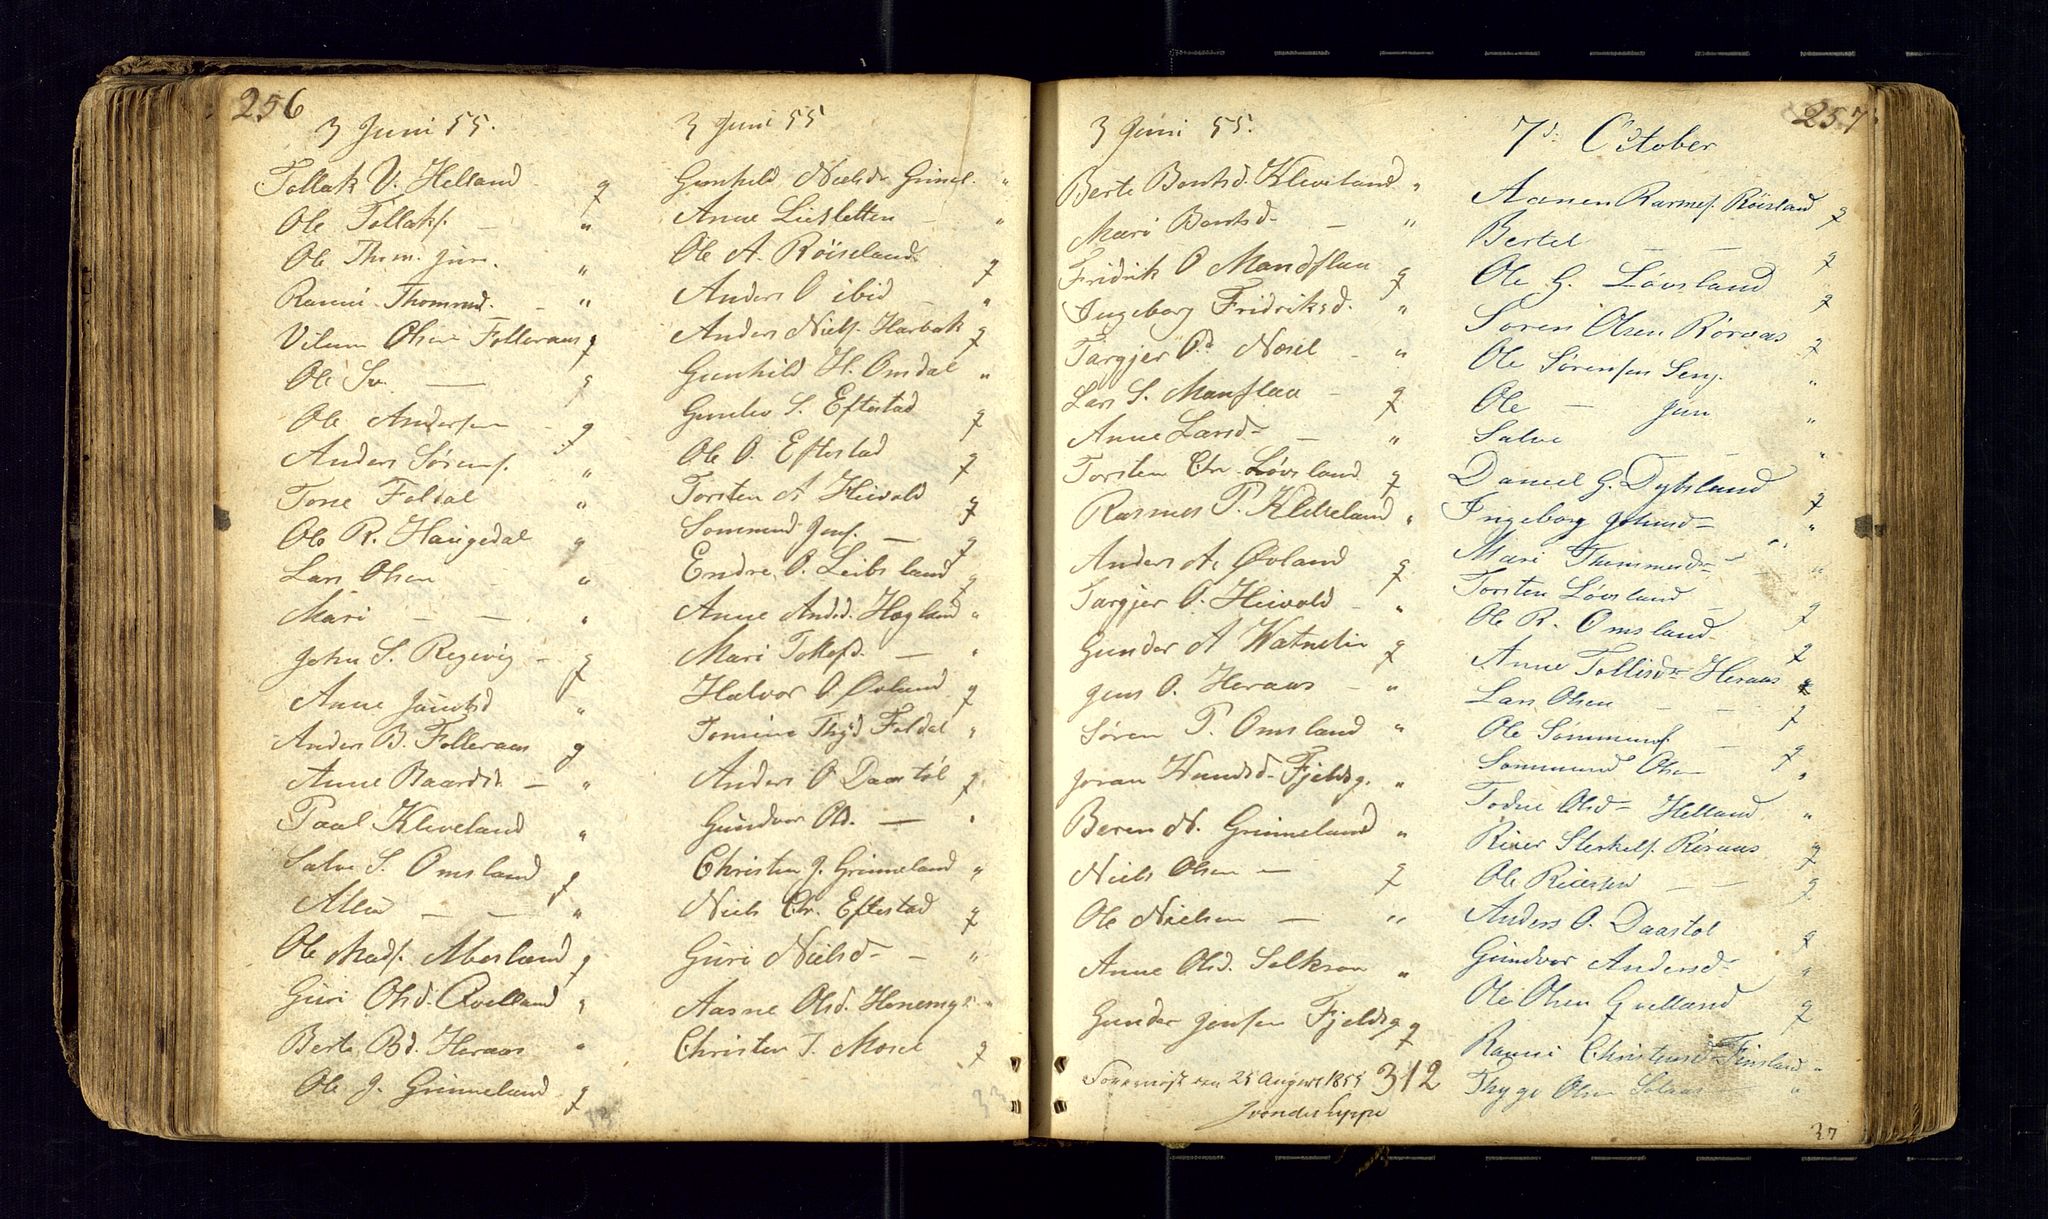 256
3 Juni 55.
Tollak V. Helland g
Ole Tollaks. — "
Ole Thom. jun. "
Ranni Thomasd. "
Vilum Olsen Folleraas g
Ole Sv. — g
Ole Andersen — g
Anders Sørens. "
Tone Foldal "
Ole R. Haugedal g
Lars Olsen "
Mari — — "
John S. Regevig — g
Anne Jacobsd "
Anders B. Folleraas g
Anne Baardsd. — "
Paal Kleveland "
Salve S. Omsland g
— — "
Ole Mads. g
Guri Olsd. "
Berte Bd. Heraas "
Ole J. Grimeland g
3 Juni 55
Gunhild Nielsdr "
Anne Liesletten — "
Ole A. Røiseland g
Anders O ibid — "
Anders Niels. Harbak g
Gunhild H. Omdal "
Gunder S. Eftestad g
Ole O. Eftestad g
Torsten A Heivold g
Sommund Jens. — g
Endre O. Leibsland g
Anne Andsd. Hægland "
Mari — "
Halvor O. Øvland g
Tomine Foldal "
Anders O Daastøl g
Gundvor Old. — "
Christen J. Grimeland "
Niels Chr. Eftestad g
Guri Nielsd — "
Aasne Olsd. "
Christen T. Mosel g
33
257
3 Juni 55.
Berte Bentsd. Kleveland "
Mari Bentsd — "
Fridrik O Mandflaa g
Ingeborg Fridriksd. "
Targjer Od Nosel — "
Lars S. Manflaa — g
Anne Larsd — "
Torsten Chr. Løvsland g
Rasmus P. "
Anders A. Øvland g
Targjer O. Heivold — "
Gunder A Watnelie g
Jens O. Heraas — "
Søren P. Omsland "
Joran Knudsd. Fjeldsg. "
Beren N. Grimeland "
Niels Olsen — g
Ole Nielsen — "
Anne Olsd. "
Gunder Jensen Fjeldsg g
25 August 1855 312
7d October
Aanen Rasmus. Røisland g
Bertel — — g
Ole G. Løvsland g
Soren Olsen Røraas g
Ole Sørensen Seny. "
Ole — jun "
Salve "
Daniel G. Dybsland g
Ingeborg "
Mari Thommesdr "
Torsten Løvsland — g
Ole R. Omsland g
Anne Tollisdr Heraas
Lars Olsen — — g
Ole Sommuns. — g
Sommund Olsen "
Todne Olsd Helland "
Reier Sterkels. Røraas g
Ole Reiersen — — g
Anders O. Daastøl g
Gundvor Andersd "
Ole Olsen g
Ranni Christensd Finsland "
Thyge Olsen — "
37